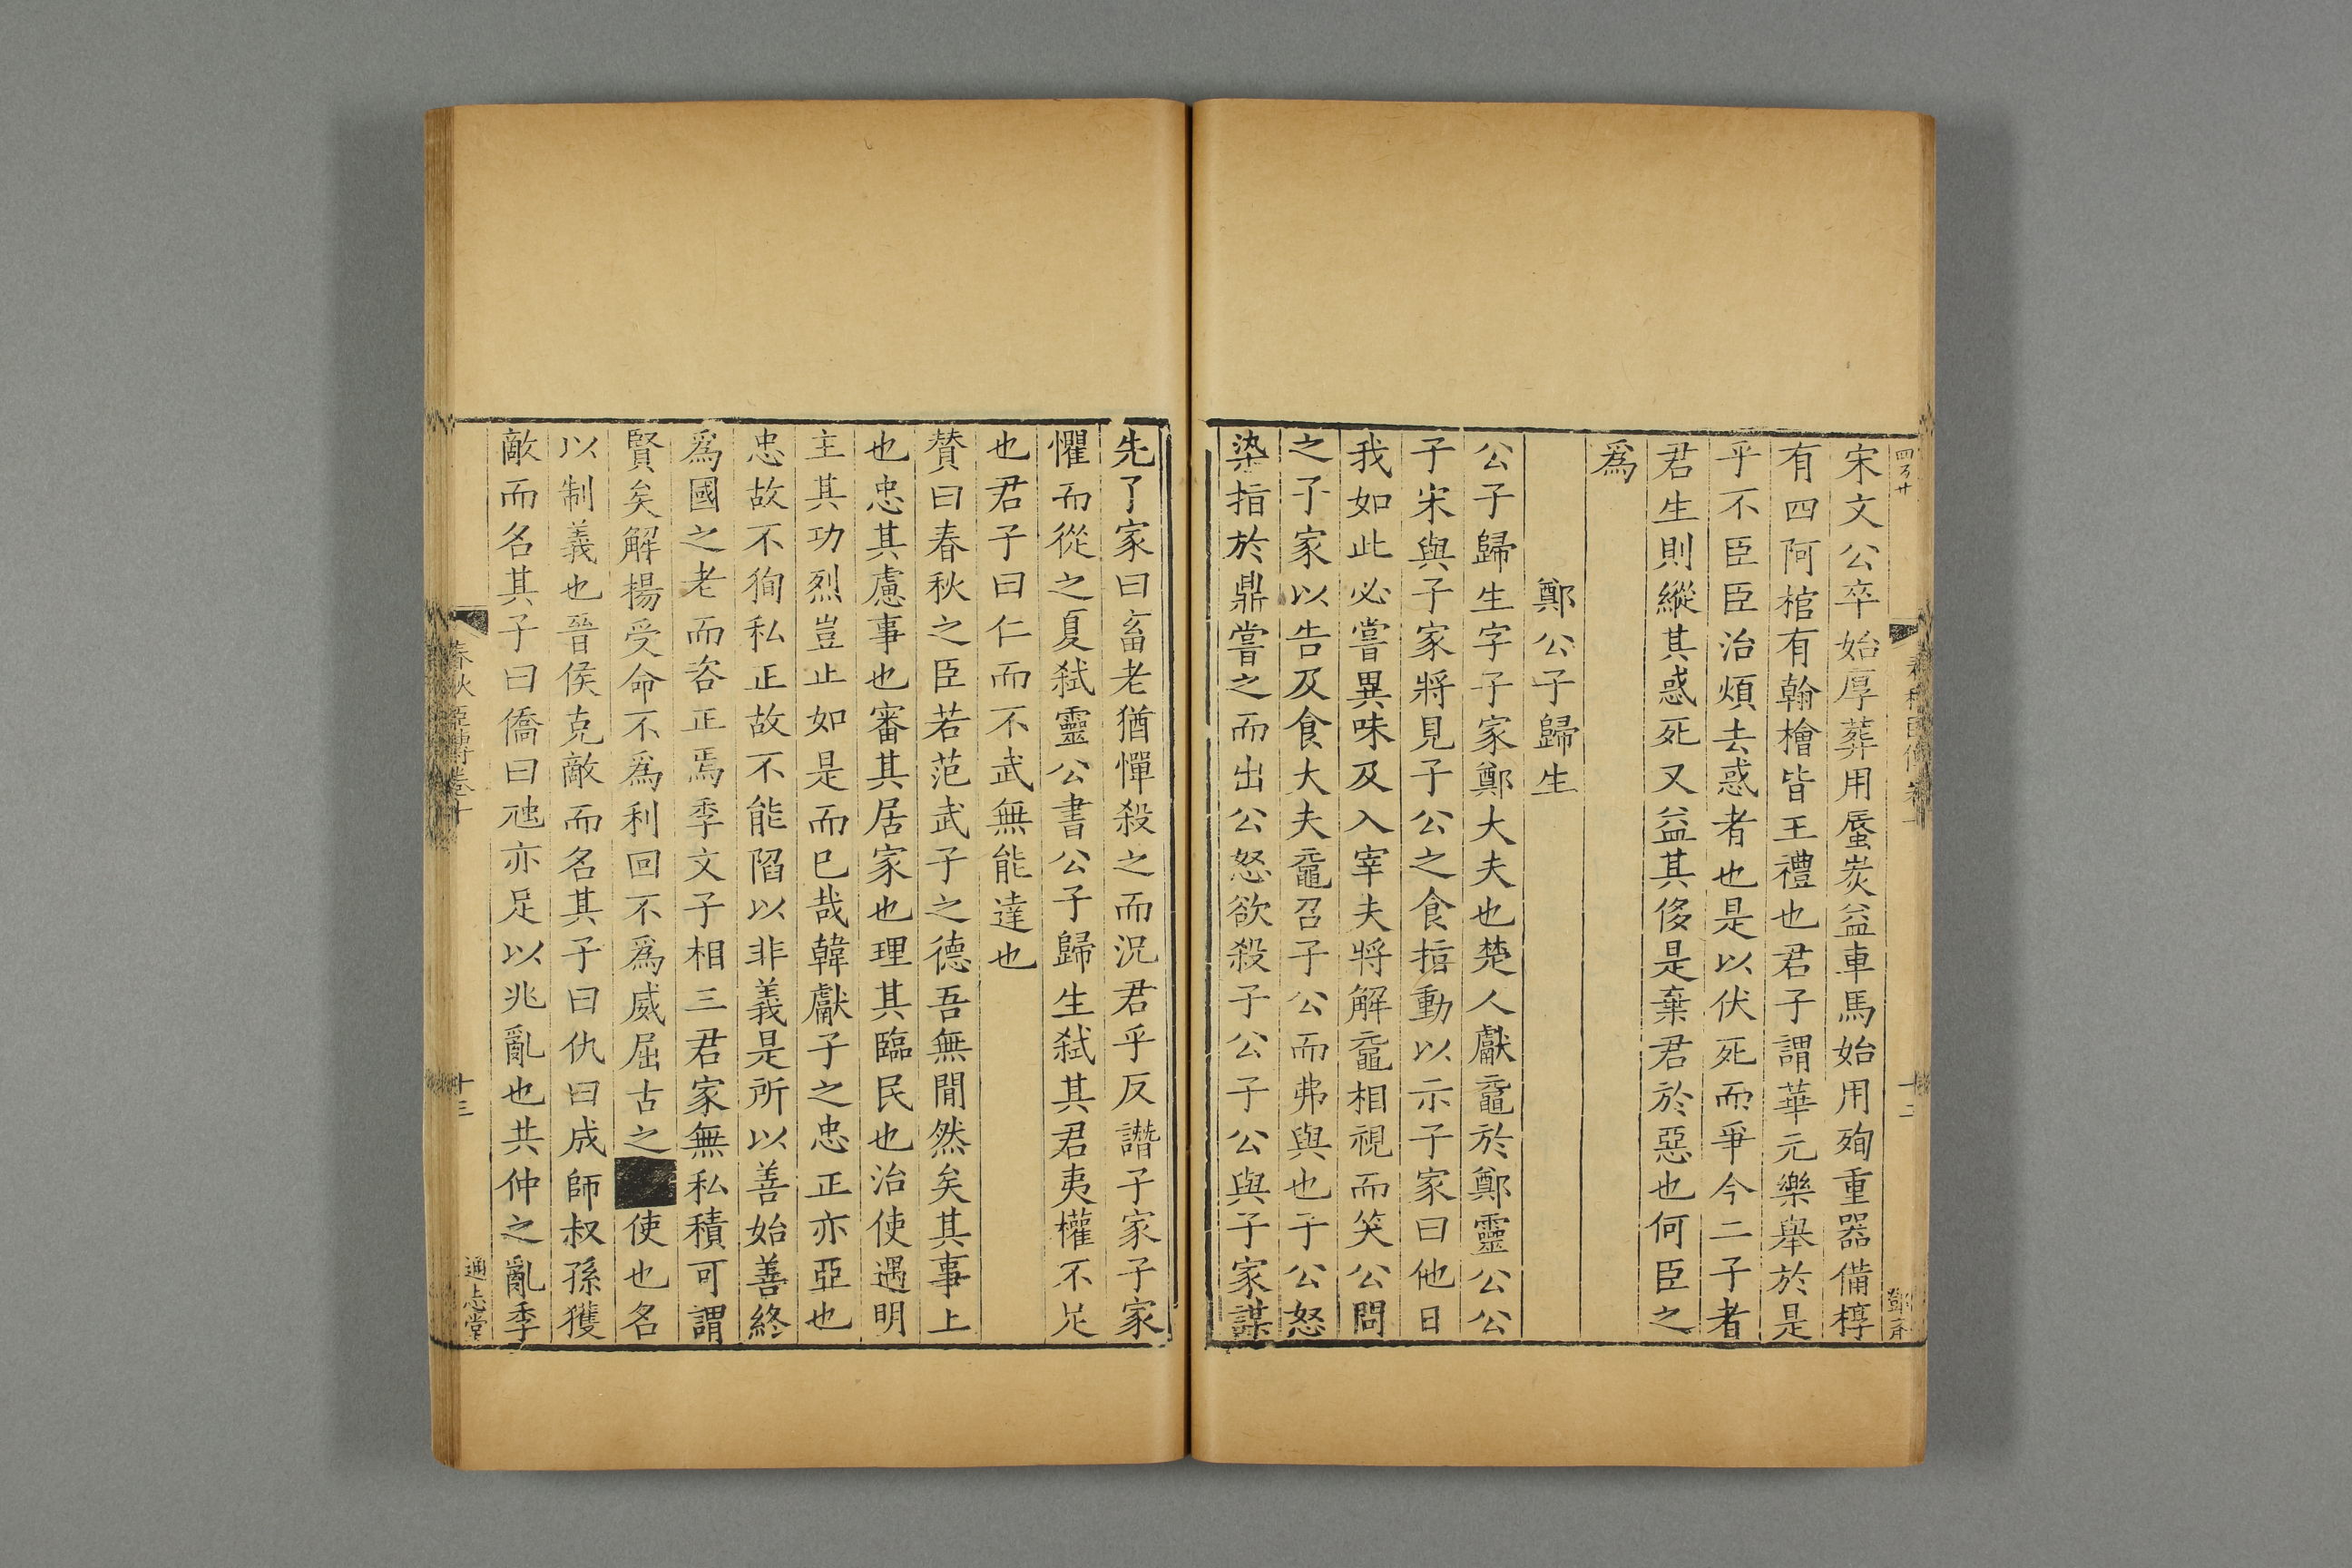 宋文公卒始厚葬用蜃炭益車馬始用殉重器備椁
有四阿棺有翰檜皆王禮也君子謂華元樂舉於是
乎不臣臣治煩去惑者也是以伏死而爭今二子者
君生則縱其惑死又益其侈是棄君於惡也何臣之
爲
鄭公子歸生
公子歸生字子家鄭大夫也楚人獻黿於鄭靈公公
子宋與子家將見子公之食指動以示子家曰他日
我如此必嘗異味及入宰夫將解黿相視而笑公問
之子家以告及食大夫黿召子公而弗與也子公怒
染指於鼎嘗之而出公怒欲殺子公子公與子家謀
先子家曰畜老猶憚殺之而況君乎反譖子家子家
懼而從之夏弑靈公書公子歸生弑其君夷權不足
也君子曰仁而不武無能達也
贊曰春秋之臣若范武子之德吾無間然矣其事上
也忠其慮事也審其居家也理其臨民也治使遇明
主其功烈豈止如是而已哉韓獻子之忠正亦亞也
忠故不徇私正故不能陷以非義是所以善始善終
爲國之老而咨正焉季文子相三君家無私積可謂
賢矣解揚受命不爲利回不爲威屈古之使也名
以制義也晉侯克敵而名其子曰仇曰成師叔孫獲
敵而名其子曰僑曰虺亦足以兆亂也共仲之亂季
春秋臣傳卷十
十三
通志堂